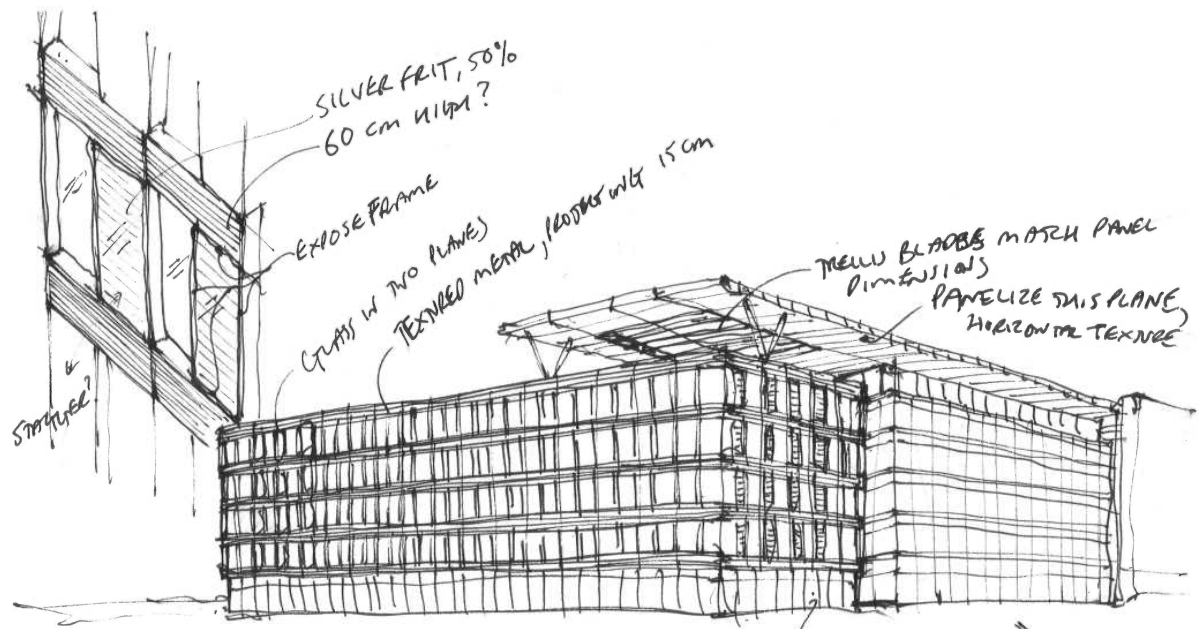 SILVER FRIT, 50%
60 cm HIGH?
EXPOSE FRAME
GLASS IN TWO PLANES
TEXTURED METAL, PROJECTING 15cm
TRELLIS BLADES MATCH PANEL
DIMENSIONS
PANELIZE THIS PLANE,
HORIZONTAL TEXTURE
?